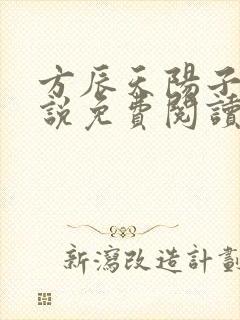 方辰天陽子
說免費閱讀
新瀉改造計劃